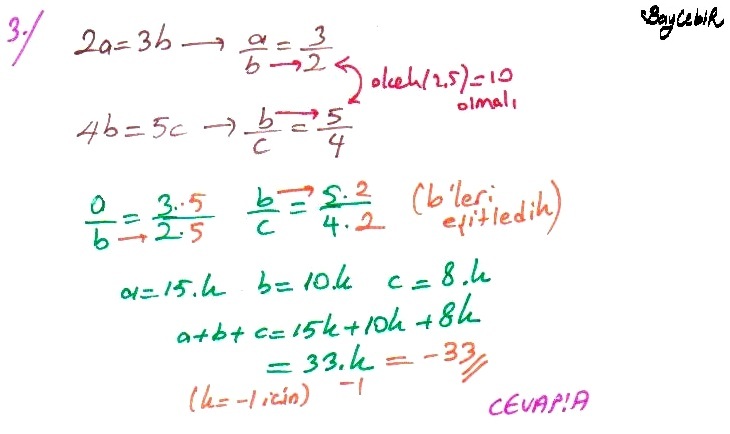 BayCebiR
3./ 2a=3b → a/b = 3/2
okek(2,5)=10
olmalı
4b=5c → b/c = 5/4
a/b = 3.5/2.5 b/c = 5.2/4.2 (b'leri
eşitledik)
a=15.k b=10k c=8.k
a+b+c=15k+10k+8k
=33.k = -33
(k=-1 için) -1
CEVAP:A